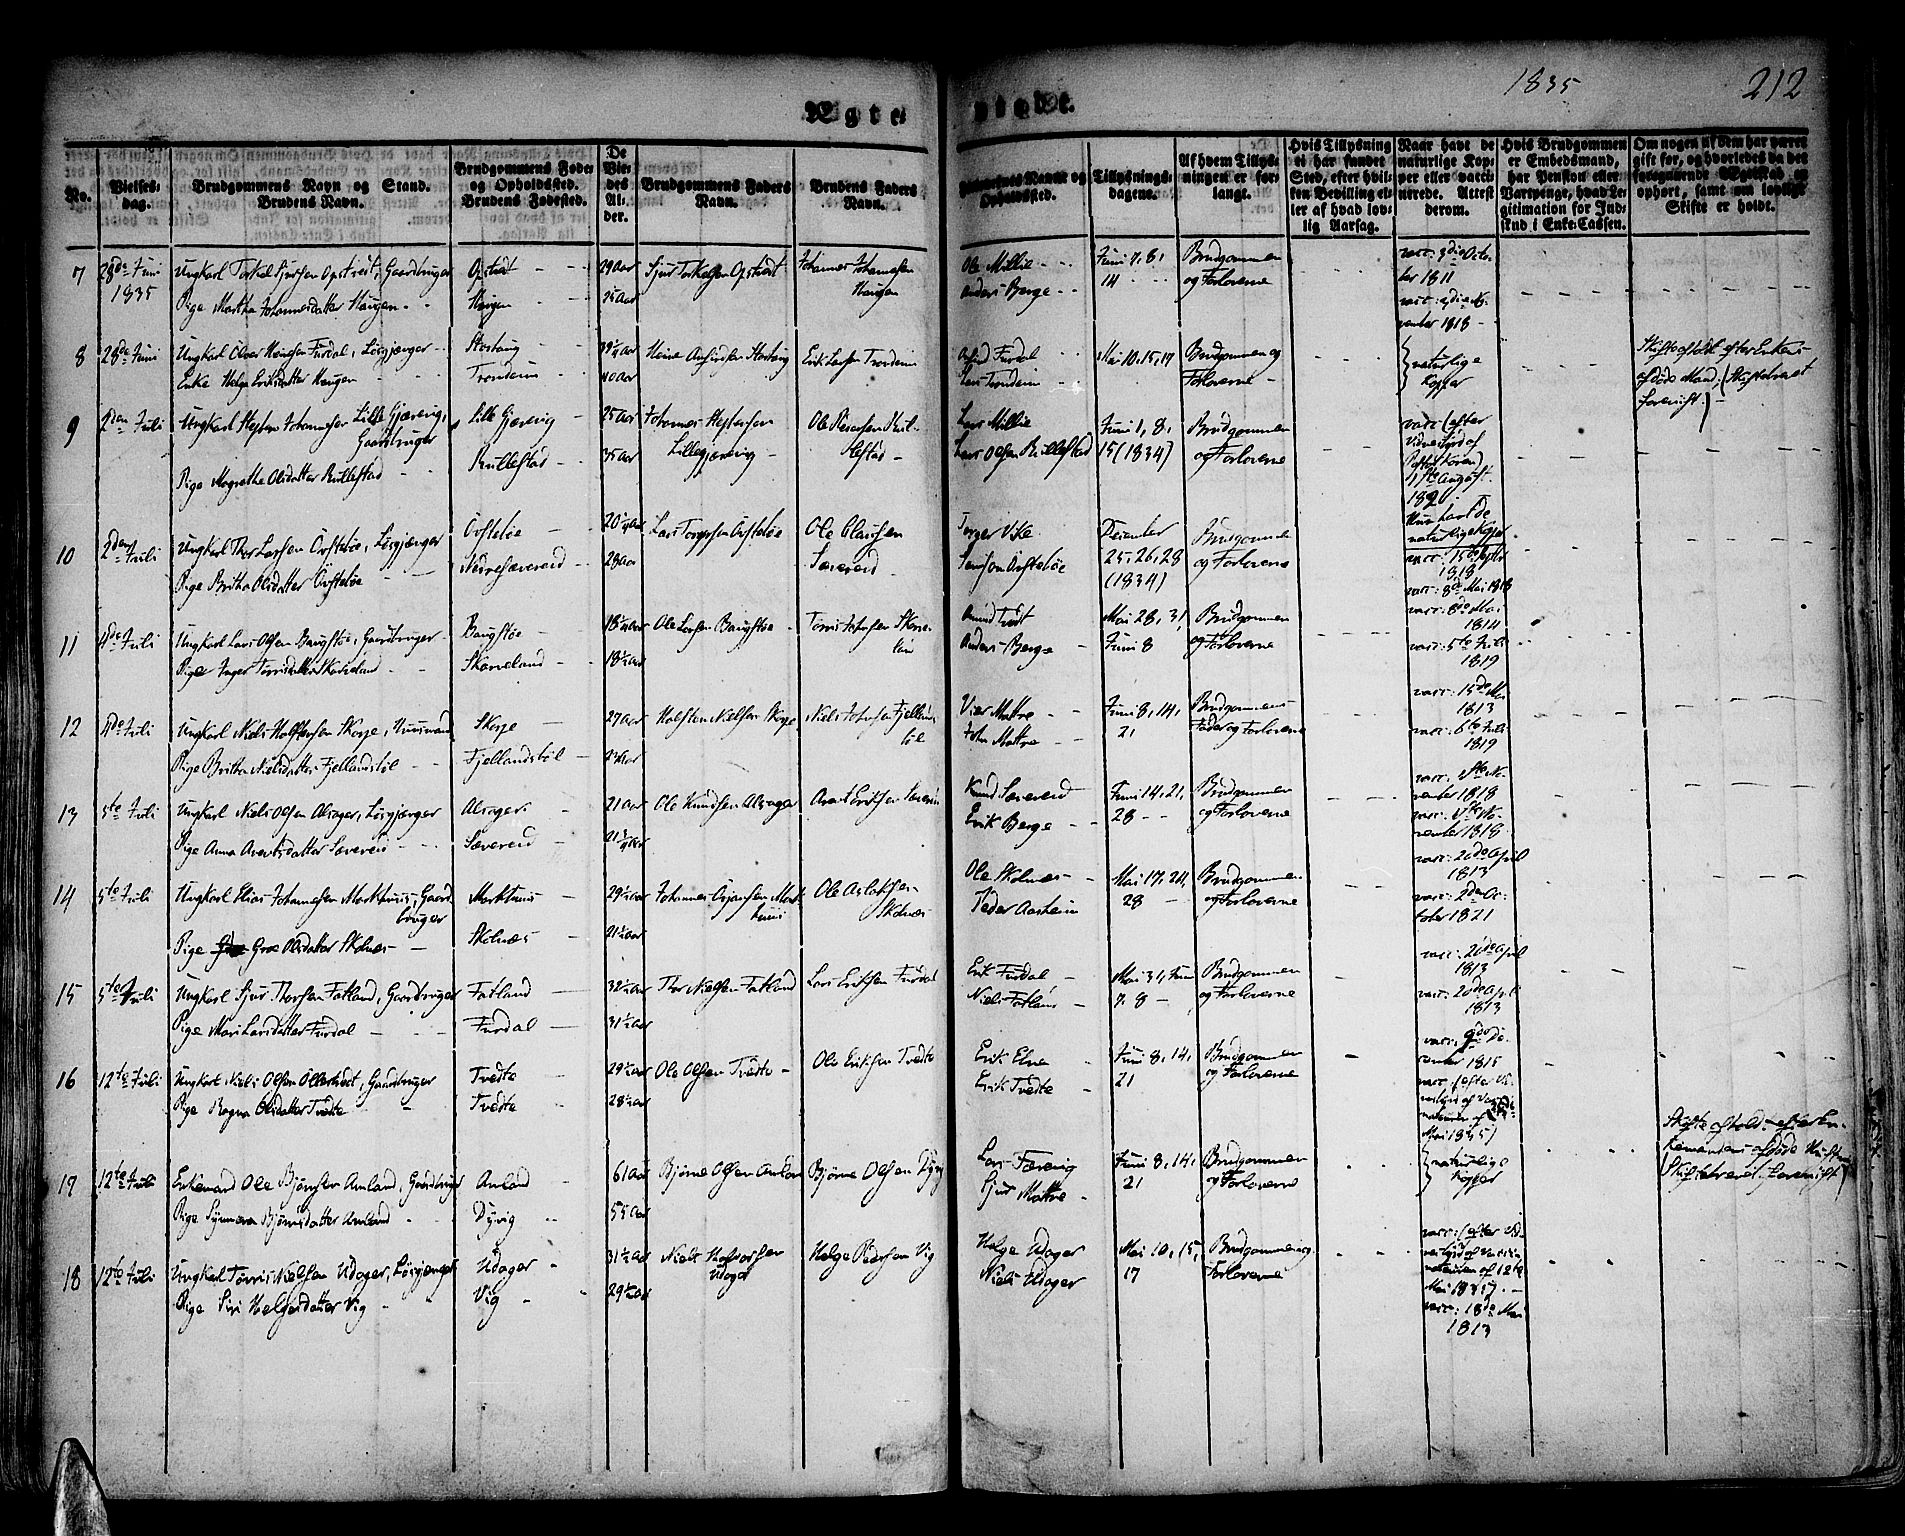 1835 212
Ægte viede.
No.
Vielses-dag.
Brudgommens Navn og Stand.
Brudens Navn.
Brudgommens Føde-
og Opholdssted.
Brudens Fødested.
De Viedes Alder.
Brudgommens Faders
Navn.
Brudens Faders
Navn.
Navne og
Opholdssted.
Tillysnings-
dagene.
Af hvem Tillys-
ningen er for-
langt.
Hvis Tillysning
ei har fundet
Sted, efter hvil-
ken Bevilling el-
ler af hvad lov-
lig Aarsag.
Naar havt de
naturlige Kop-
per eller vacci-
nerede. Attest
derom.
Hvis Brudgommen
er Embedsmand,
har Pension eller
Vartpenge, hvad Le-
gitimation for Ind-
skud i Enke-Cassen.
Om nogen af dem har været
gift før, og hvorledes da det
foregaaende Ægteskab er
ophørt, samt om lovligt
Skifte er holdt.
7 28de Juni
1835
Ungkarl Torkel Sjursen Opstvet, Gaardbruger
Pige Martha Johannesdatter Haugen
Opstvedt
Haugen
29 Aar
25 Aar
Sjur Torkelsen Opstvedt
Johannes Johannesen
Haugen
Ole Millie
Anders Berge
Juni 7, 8,
14
Brudgommen
og Forloverne
vacc: 3die Octo-
ber 1811
vacc: 3die No-
vember 1818
8 28de Juni
Enke Helge Eriksdatter Haugen
Trondeim
39 1/4 Aar
40 Aar
Erik Larsen Trondeim
Furdal
Lars Trondeim
Mai 10, 15, 17
Brudgommen og
Forloverne
naturlige
Kopper
Skifte afholdt efter Enkens
afdøde Mand, (Skiftebrevet
forevist)
9 2den Juli
Ungkarl Johannesen Lille Gjærevig,
Gaardbruger
Pige Magrethe Olsdatter Rullestad
Lille Gjærevig
Rullestad
25 Aar
35 Aar
Johannes
Lillegjærevig
Ole
Lars Millie
Lars Olsen Rullestad
Juni 1, 8,
15 (1834)
Brudgommen
og Forloverne
vacc: (efter
Vidnesbyrd af
Pastor Koren)
17de August
Hun havt de
naturlige Kopper
10 2den Juli
Ungkarl Thor Larsen Øvstebøe, Løsgjænger
Pige Britha Olsdatter Øvstebøe
Øvstebøe
Nedresævereid
20 1/4 Aar
28 Aar
Ole Clausen
Sævereid
Torger Vike
Samson Øvstebøe
December
25, 26, 28
(1834)
Brudgommen
og Forloverne
1818
vacc: 8de Mai 1818
11 4de Juli
Ungkarl Lars Olsen Baugstøe, Gaardbruger
Pige Inger Torrisdatter Skaaneland
Baugstøe
Skaaneland
18 3/4 Aar
18 1/2 Aar
Ole Larsen Baugstøe
Amund Tvedt
Anders Berge
Mai 28, 31
Juni 8
Brudgommen
og Forloverne
vacc: 8de Mai
1814
vacc: 5te Juli
1819
12 4de Juli
Ungkarl Niels Halstensen Skorpe, Huusmand
Pige Britha Nielsdatter Fjellandsbøl
Skorpe
Fjellandsbøl
27 Aar
Halsten Nielsen Skorpe
Niels Johnsen Fjellands-
bøl
Vier Mattre
John Mattre
Juni 8, 14,
21
Brudgommens
Fader og Forloverne
vacc: 15de Mai
1813
vacc: 6te Juli
1819
13 5te Juli
Ungkarl Niels Olsen Alsager, Løsgjænger
Pige Anna Arentsdatter Sævereid
Alsager
Sævereid
21 Aar
21 3/4 Aar
Ole Knudsen Alsager
Arent Eriksen Sævereid
Knud Sævereid
Erik Berge
Juni 14, 21,
28
Brudgommen
og Forloverne
vacc: 5te No-
vember 1818
vacc: 5te No-
vember 1818
14 5te Juli
Ungkarl Elias Johannesen Markhuus, Gaard-
bruger
Pige Groe Olsdatter Skolnæs
Markhuus
Skolnæs
29 1/2 Aar
21 1/2 Aar
Johannes Mark-
huus
Ole Aslaksen
Skolnæs
Ole Skolnæs
Peder Aasheim
Mai 17, 24,
28
Brudgommen
og Forloverne
vacc: 20de April
1813
vacc: 2den Oc-
tober 1821
15 5te Juli
Ungkarl Sjur Thorsen Fatland, Gaardbruger
Pige Mari Larsdatter Furdal
Fatland
Furdal
32 1/2 Aar
31 1/2 Aar
Thor Nielsen Fatland
Lars Eriksen Furdal
Erik Furdal
Niels Fatland
Mai 31, Juni
7, 8
Brudgommen
og Forloverne
vacc: 20de April
1813
vacc: 20de April
1813
16 12te Juli
Ungkarl Niels Olsen Ollerstvedt, Gaardbruger
Pige Ragna Olsdatter Tvedte
Tvedte
Tvedte
29 1/2 Aar
28 1/2 Aar
Ole Olsen Tvedte
Ole Eriksen Tvedte
Erik Elve
Erik Tvedte
Juni 8, 14,
21
Brudgommen
og Forloverne
vacc: 9de De-
cember 1815
vacc: (efter Vid-
nesbyrd af Vacci-
natøren af
Mai 1835)
17 12te Juli
Enkemand Ole Bjørnsen Amland, Gaardbruger
Pige Synneva Bjørnsdatter Amland
Amland
Dyvig
61 Aar
55 Aar
Bjørne Olsen Amland
Bjørne Olsen Dyvig
Lars Færevig
Sjur Mattre
Juni 8, 14,
21
Brudgommen
og Forloverne
naturlige
Kopper
Skifte afholdt efter En-
kemandens afdøde Hustru
(Skiftebrevet forevist)
18 12te Juli
Ungkarl Torris Nielsen Udager, Løsgjænger
Pige Siri Helgesdatter Vig
Udager
Vig
31 1/2 Aar
29 1/2 Aar
Niels Halvorsen
Udager
Helge Pedersen Vig
Helge Udager
Niels Udager
Mai 10, 15,
17
Brudgommen og
Forloverne
vacc: (efter Vid-
nesbyrd af Vacci-
natøren af 12te
Mai 1835)
vacc: 18de Mai
1813